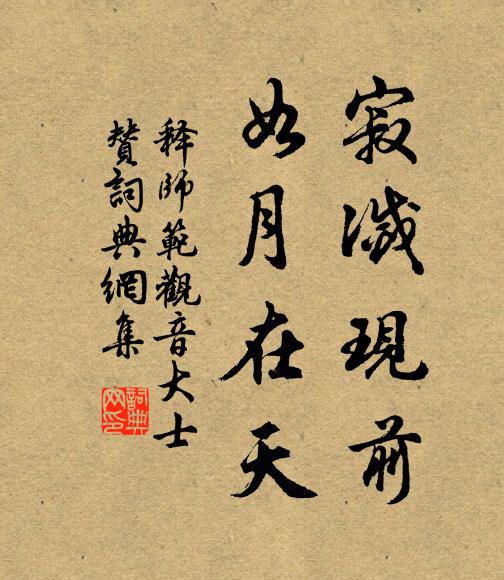 寂滅現前
如月在天
釋師範觀音大士
贊詞典網集
詞典網印